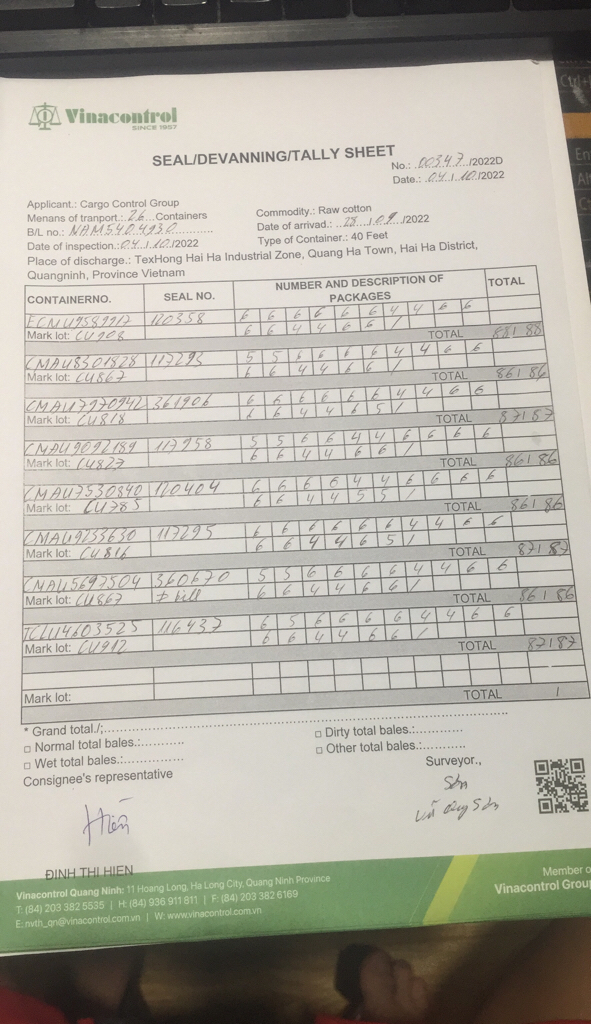 Vinacontrol
SINCE 1957
SEAL/DEVANNING/TALLY SHEET
No.: 00347/2022D
Date.: 04/10/2022
Applicant.: Cargo Control Group
Menans of tranport.: 26 Containers
B/L no.: NAM5404930
Date of inspection.: 04/10/2022
Commodity.: Raw cotton
Date of arrivad.: 28/09/2022
Type of Container.: 40 Feet
Place of discharge.: TexHong Hai Ha Industrial Zone, Quang Ha Town, Hai Ha District,
Quangninh, Province Vietnam
CONTAINERNO. SEAL NO. NUMBER AND DESCRIPTION OF PACKAGES TOTAL
ECMU9589917 120358 6 6 6 6 6 6 4 4 6 6
6 6 4 4 6 6 /
Mark lot: CU908 TOTAL 88/88
CMAU8301828 117293 5 5 6 6 6 6 4 4 6 6
6 6 4 4 6 6 /
Mark lot: CU867 TOTAL 86/86
CMAU7970942 361906 6 6 6 6 6 6 4 4 6 6
6 6 4 4 6 5 /
Mark lot: CU818 TOTAL 87/87
CMAU9092189 117958 5 5 6 6 4 4 6 6 6 6
6 6 4 4 6 6 /
Mark lot: CU827 TOTAL 86/86
CMAU7530840 120404 6 6 6 6 4 4 6 6 6 6
6 6 4 4 5 5 /
Mark lot: CU785 TOTAL 86/86
CMAU9733630 117295 6 6 6 6 6 6 4 4 6 6
6 6 4 4 6 5 /
Mark lot: CU816 TOTAL 87/87
CMAU5697504 360670 5 5 6 6 6 6 4 4 6 6
≠ bill 6 6 4 4 6 6 /
Mark lot: CU867 TOTAL 86/86
TCLU4603525 116437 6 5 6 6 6 6 4 4 6 6
6 6 4 4 6 6 /
Mark lot: CU912 TOTAL 87/87
Mark lot: TOTAL /
* Grand total./;
□ Normal total bales.:
□ Wet total bales.:
□ Dirty total bales.:
□ Other total bales.:
Consignee's representative
Surveyor.,
Hiền
Sơn
Vũ Sơn
ĐINH THI HIEN
Vinacontrol Quang Ninh: 11 Hoang Long, Ha Long City, Quang Ninh Province
T: (84) 203 382 5535 | H: (84) 936 911 811 | F: (84) 203 382 6169
E: nvth_qn@vinacontrol.com.vn | W: www.vinacontrol.com.vn
Member o
Vinacontrol Group